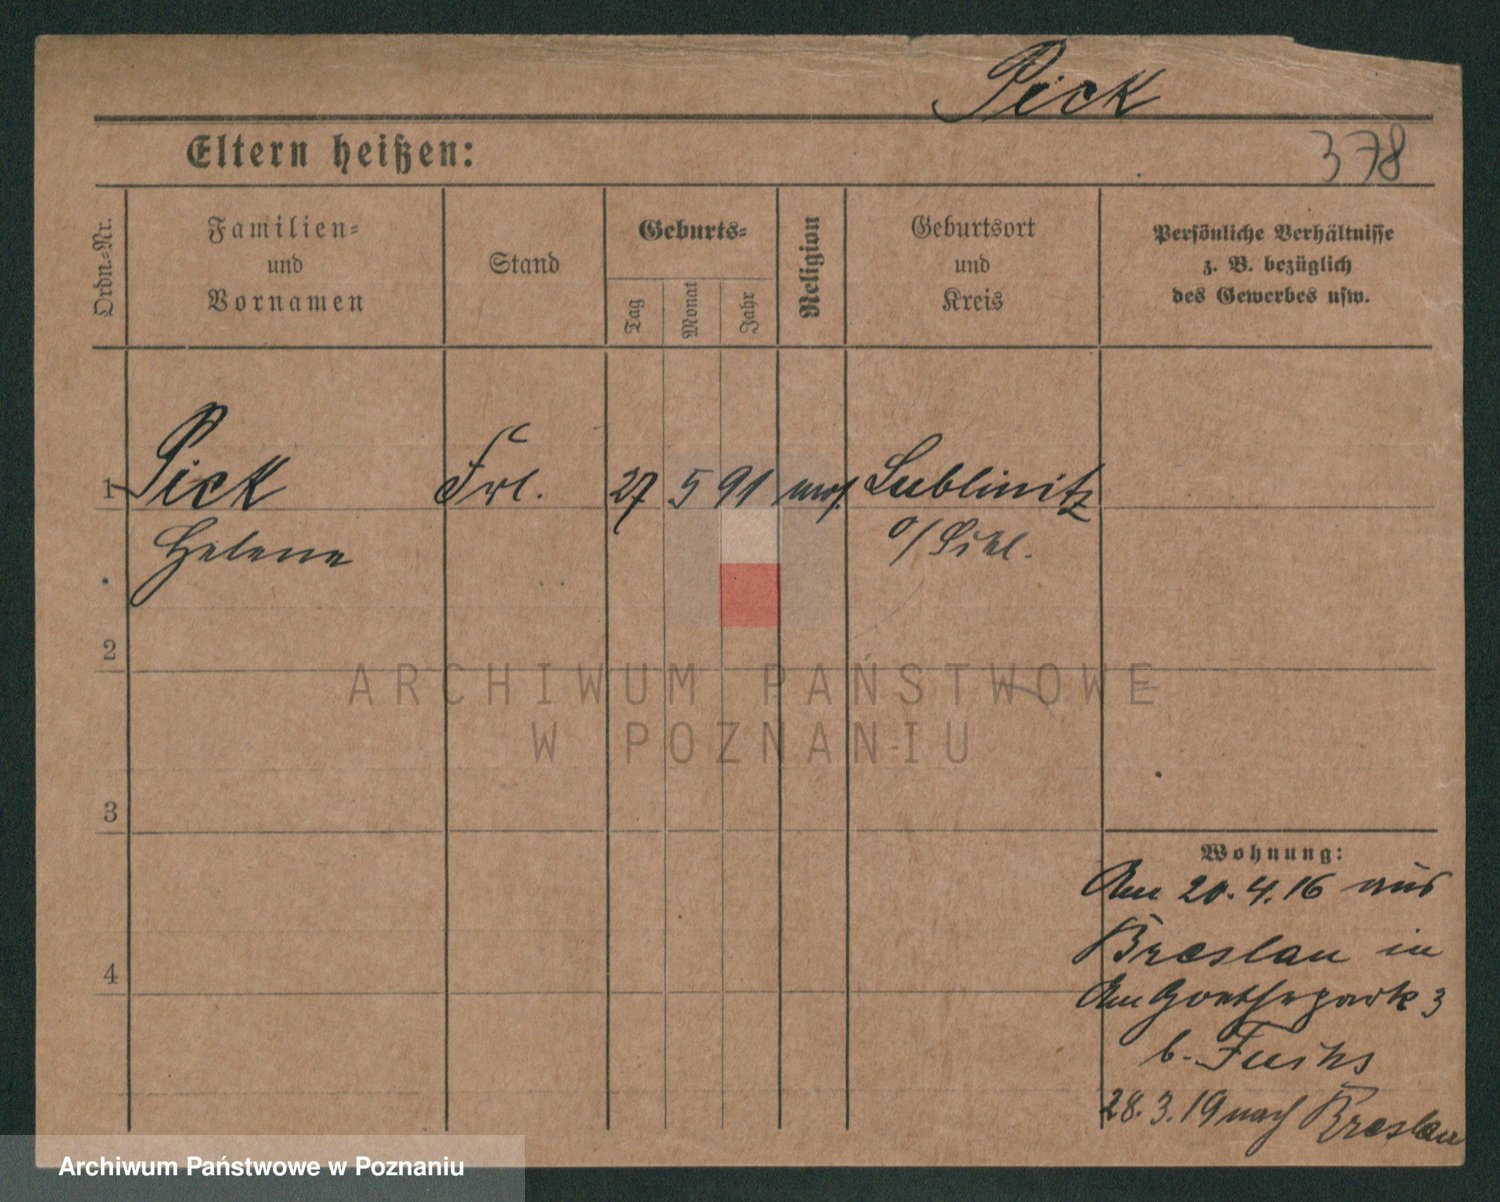 Pick
Eltern heißen:
378
Ordn.-Nr.
Familien-
und
Vornamen
Stand
Geburts-
Tag
Monat
Jahr
Religion
Geburtsort
und
Kreis
Persönliche Verhältnisse
z. B. bezüglich
des Gewerbes usw.
1 Pick Frl. 27 5 91 mos. Lublinitz
Helene o/Schl.
2
3
4
Wohnung:
Am 20.4.16 aus
Breslau in
Am Goethepark 3
b. Fuchs
28.3.19 nach Breslau
ARCHIWUM PAŃSTWOWE
W POZNANIU
Archiwum Państwowe w Poznaniu